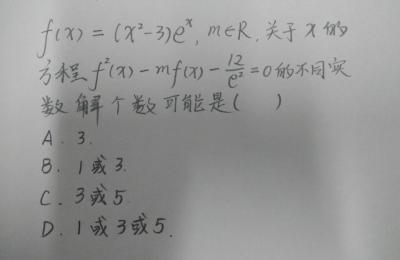 f(x) = (x²-3)eˣ, m∈R, 关于 x 的
方程 f²(x) - mf(x) - 12/e² = 0 的不同实
数解个数可能是( )
A. 3.
B. 1或3.
C. 3或5.
D. 1或3或5.